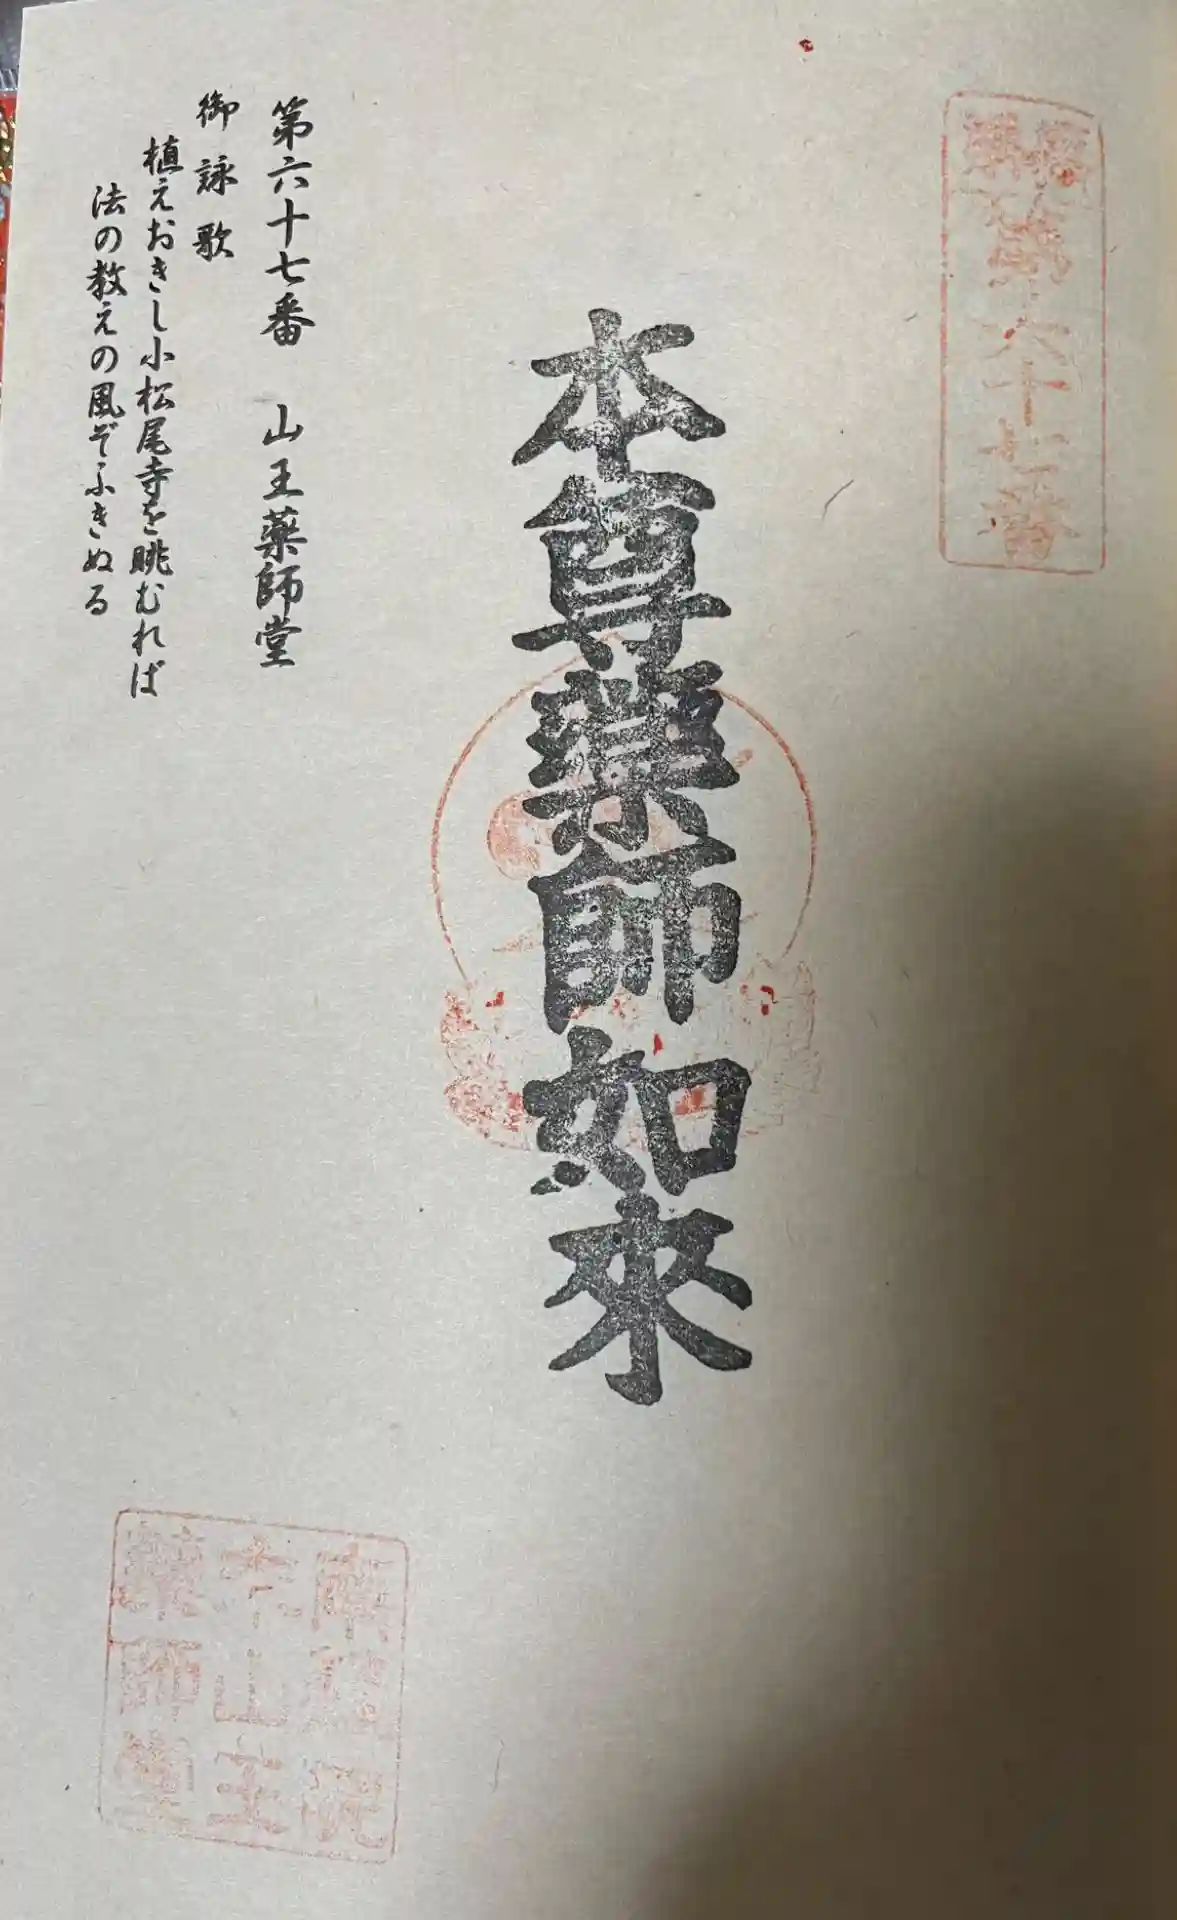 第六十七番
本尊薬師如來
第六十七番　山王薬師堂
御詠歌
植えおきし小松尾寺を眺むれば
法の教えの風ぞふきぬる
山王
薬師堂